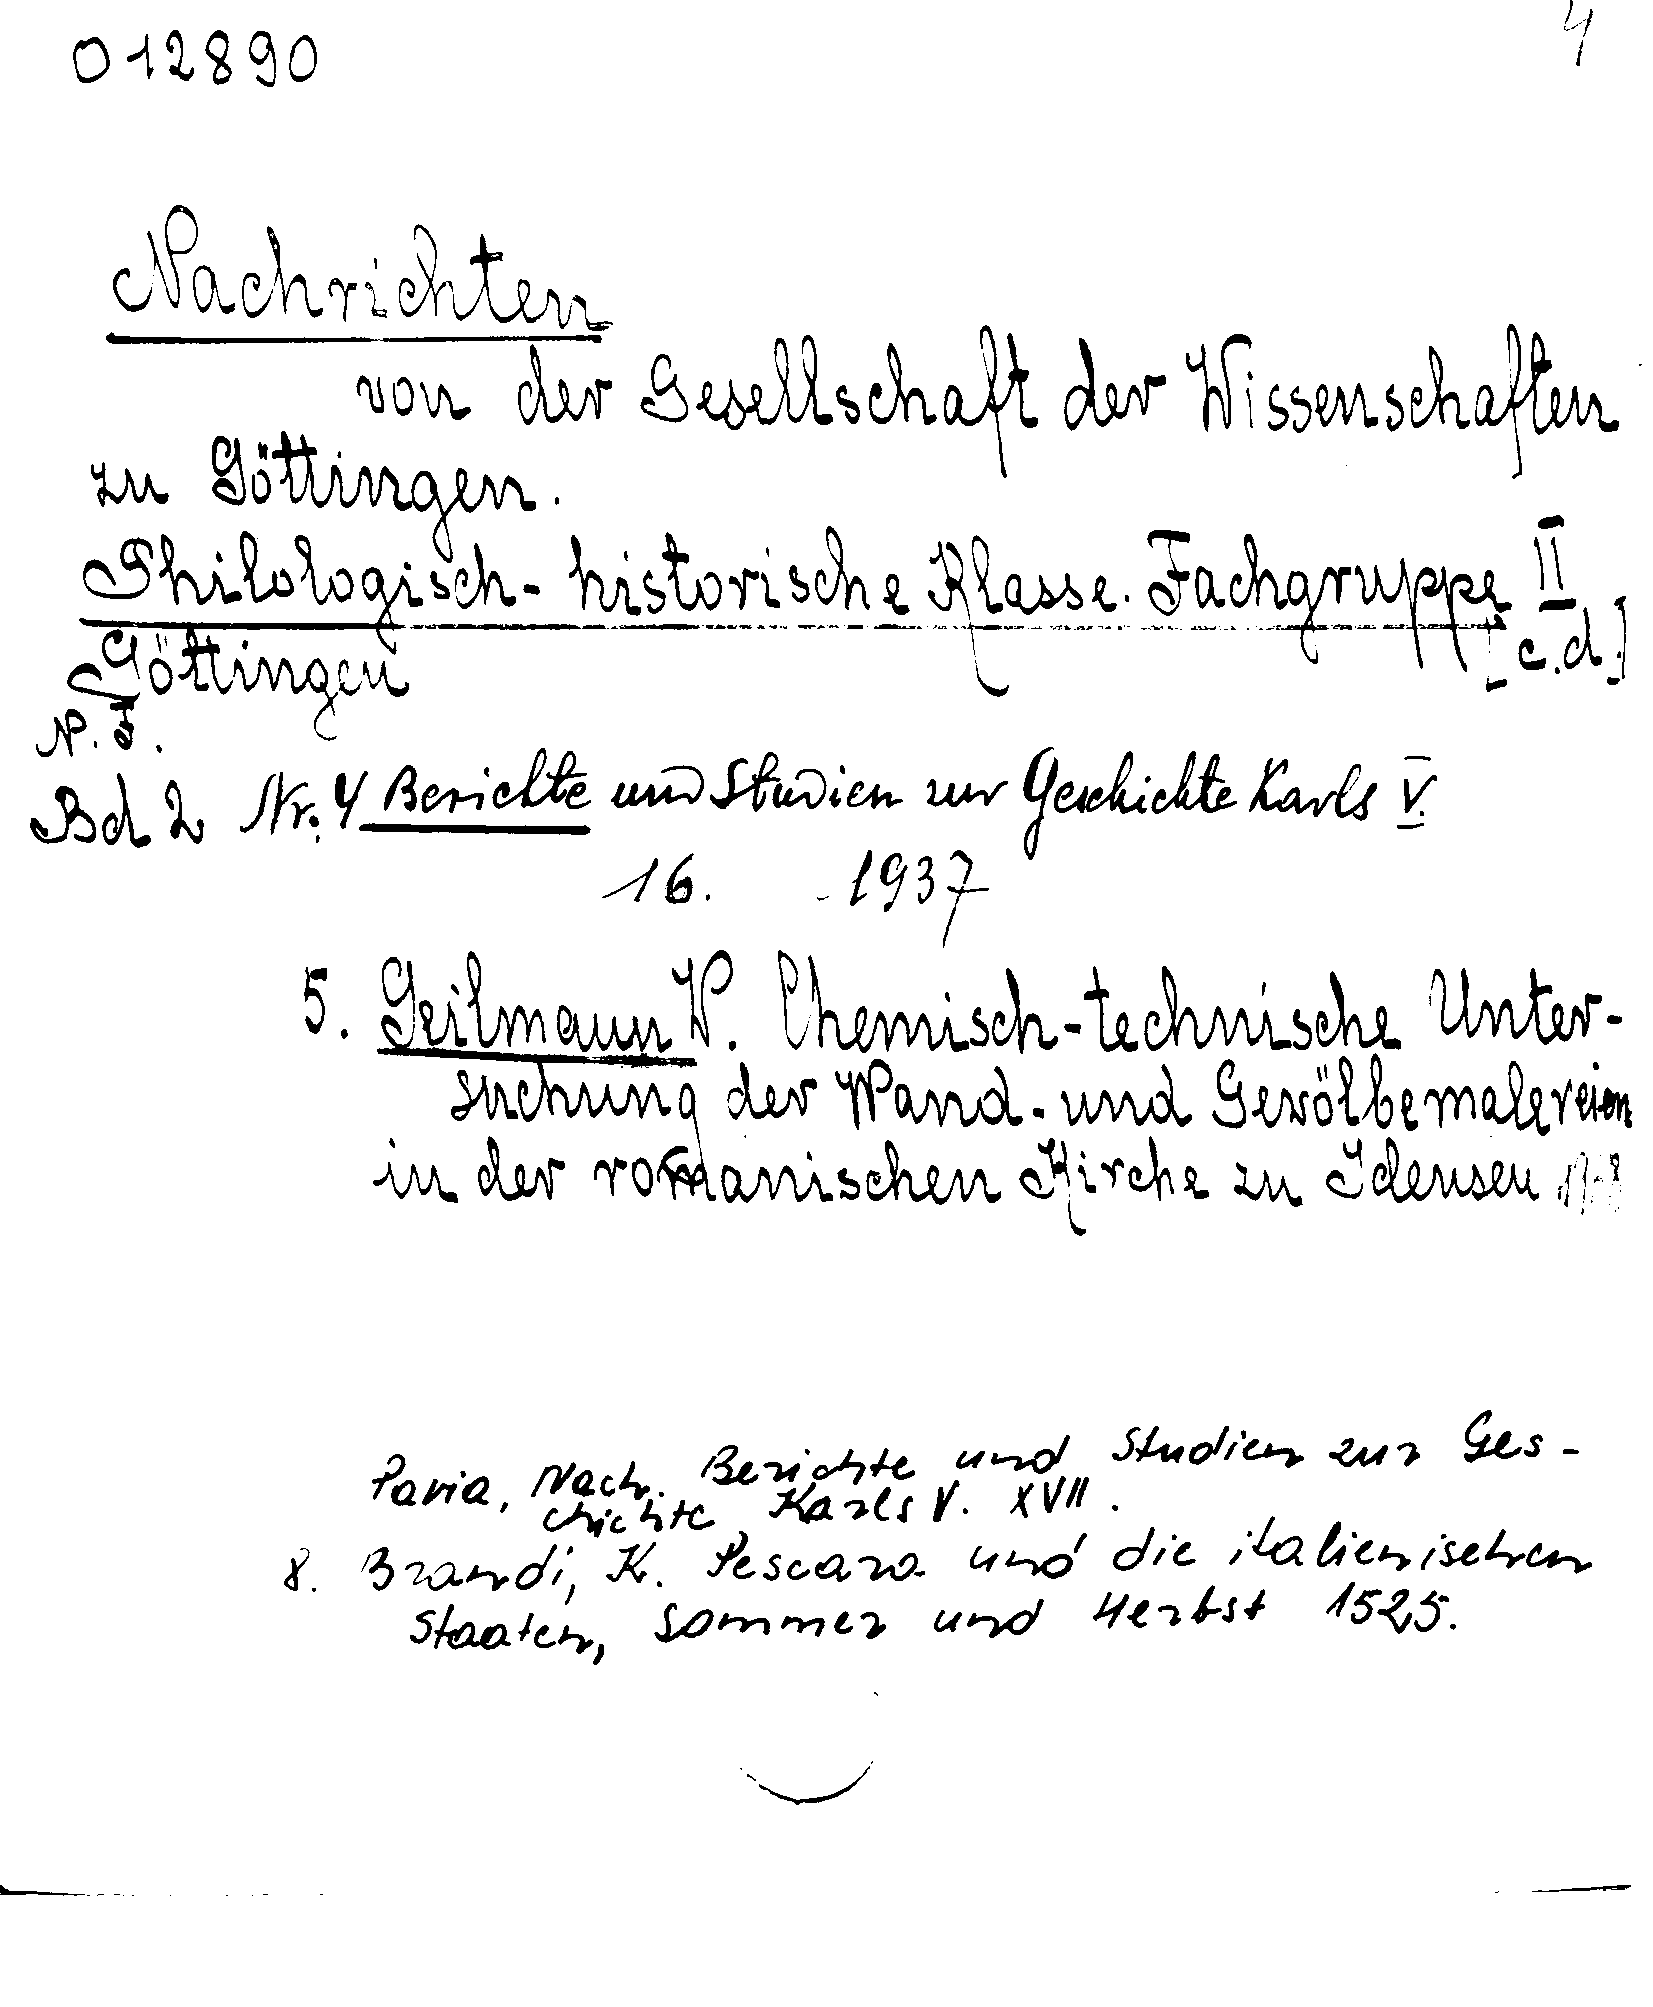 012890 4
Nachrichten
von der Gesellschaft der Wissenschaften
zu Göttingen.
Philologisch-historische Klasse. Fachgruppe II
Göttingen [c.d.]
N.F.
Bd 2 Nr. 4 Berichte und Studien zur Geschichte Karls V.
16. 1937
5. Geilmann W. Chemisch-technische Unter-
suchung der Wand- und Gewölbemalereien
in der romanischen Kirche zu Idensen
Pavia, Nach. Berichte und Studien zur Ges-
chichte Karls V. XVII.
8. Brandi, K. Pescara und die italienischen
Staaten, Sommer und Herbst 1525.